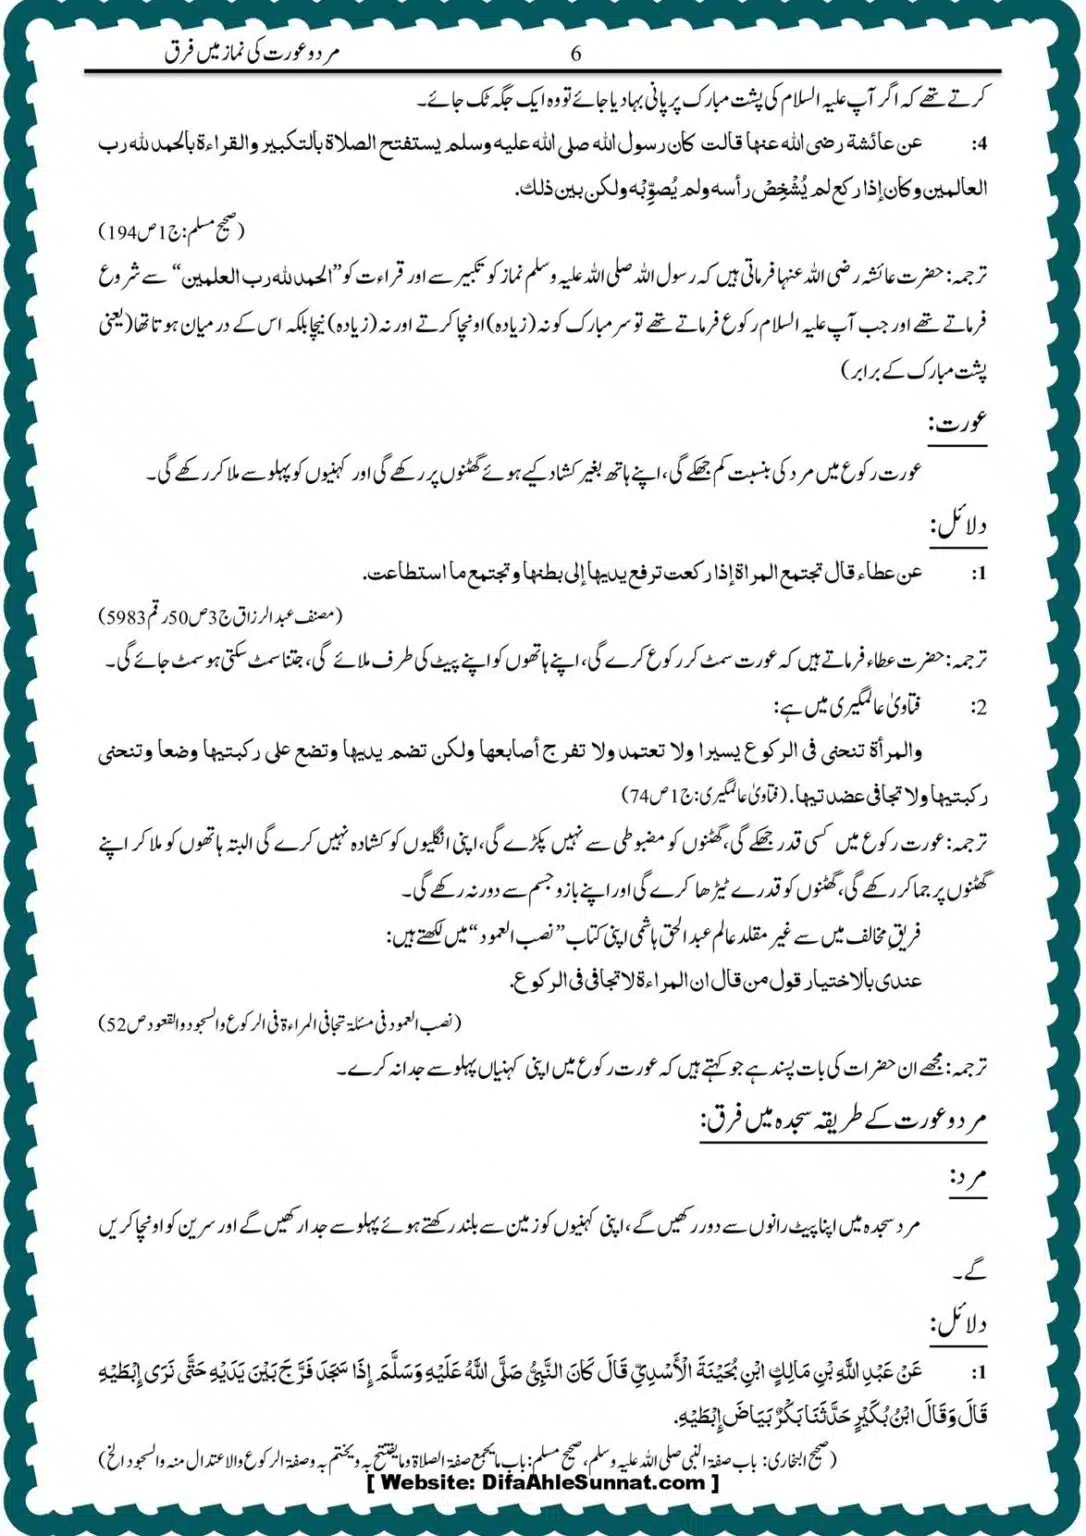 مرد و عورت کی نماز میں فرق
6
کرتے تھے کہ اگر آپ علیہ السلام کی پشت مبارک پر پانی بہا دیا جائے تو وہ ایک جگہ ٹک جائے۔
4: عن عائشة رضی الله عنها قالت كان رسول الله صلی الله علیه وسلم یستفتح الصلاة بالتکبیر والقراءة بالحمد لله رب
العالمین وکان إذا رکع لم یُشْخِصْ رأسه ولم یُصوِّبْه ولکن بین ذلك.
(صحیح مسلم: ج1 ص194)
ترجمہ: حضرت عائشہ رضی اللہ عنہا فرماتی ہیں کہ رسول اللہ صلی اللہ علیہ وسلم نماز کو تکبیر سے اور قراءت کو ”الحمد لله رب العلمین“ سے شروع
فرماتے تھے اور جب آپ علیہ السلام رکوع فرماتے تھے تو سر مبارک کو نہ (زیادہ) اونچا کرتے اور نہ (زیادہ) نیچا بلکہ اس کے درمیان ہوتا تھا (یعنی
پشت مبارک کے برابر)
عورت:
عورت رکوع میں مرد کی بنسبت کم جھکے گی، اپنے ہاتھ بغیر کشاد کیے ہوئے گھٹنوں پر رکھے گی اور کہنیوں کو پہلو سے ملا کر رکھے گی۔
دلائل:
1: عن عطاء قال تجتمع المراة إذا رکعت ترفع یدیها إلی بطنها وتجتمع ما استطاعت.
(مصنف عبدالرزاق ج3 ص50 رقم 5983)
ترجمہ: حضرت عطاء فرماتے ہیں کہ عورت سمٹ کر رکوع کرے گی، اپنے ہاتھوں کو اپنے پیٹ کی طرف ملائے گی، جتنا سمٹ سکتی ہو سمٹ جائے گی۔
2: فتاویٰ عالمگیری میں ہے:
والمرأة تنحنی فی الرکوع یسیرا ولا تعتمد ولا تفرج أصابعها ولکن تضم یدیها وتضع علی رکبتیها وضعا وتنحنی
رکبتیها ولا تجافی عضدتیها. (فتاویٰ عالمگیری: ج1 ص74)
ترجمہ: عورت رکوع میں کسی قدر جھکے گی، گھٹنوں کو مضبوطی سے نہیں پکڑے گی، اپنی انگلیوں کو کشادہ نہیں کرے گی البتہ ہاتھوں کو ملا کر اپنے
گھٹنوں پر جما کر رکھے گی، گھٹنوں کو قدرے ٹیڑھا کرے گی اور اپنے بازو جسم سے دور نہ رکھے گی۔
فریق مخالف میں سے غیر مقلد عالم عبد الحق ہاشمی اپنی کتاب ”نصب العمود“ میں لکھتے ہیں:
عندی بالاختیار قول من قال ان المراءة لا تجافی فی الرکوع.
(نصب العمود فی مسئلۃ تجافی المراءۃ فی الرکوع والسجود والقعود ص52)
ترجمہ: مجھے ان حضرات کی بات پسند ہے جو کہتے ہیں کہ عورت رکوع میں اپنی کہنیاں پہلو سے جدا نہ کرے۔
مرد و عورت کے طریقہ سجدہ میں فرق:
مرد:
مرد سجدہ میں اپنا پیٹ رانوں سے دور رکھیں گے، اپنی کہنیوں کو زمین سے بلند رکھتے ہوئے پہلو سے جدا رکھیں گے اور سرین کو اونچا کریں
گے۔
دلائل:
1: عَنْ عَبْدِ اللَّهِ بْنِ مَالِكٍ ابْنِ بُحَيْنَةَ الْأَسْدِيِّ قَالَ كَانَ النَّبِيُّ صَلَّى اللَّهُ عَلَيْهِ وَسَلَّمَ إِذَا سَجَدَ فَرَّجَ بَيْنَ يَدَيْهِ حَتَّى نَرَى إِبْطَيْهِ
قَالَ وَقَالَ ابْنُ بُكَيْرٍ حَدَّثَنَا بَكْرٌ بَيَاضَ إِبْطَيْهِ.
(صحیح البخاری: باب صفۃ النبی صلی اللہ علیہ وسلم، صحیح مسلم: باب ما یجمع صفۃ الصلاۃ وما یفتتح بہ ویختم بہ وصفۃ الرکوع والاعتدال منہ والسجود الخ)
[ Website: DifaAhleSunnat.com ]